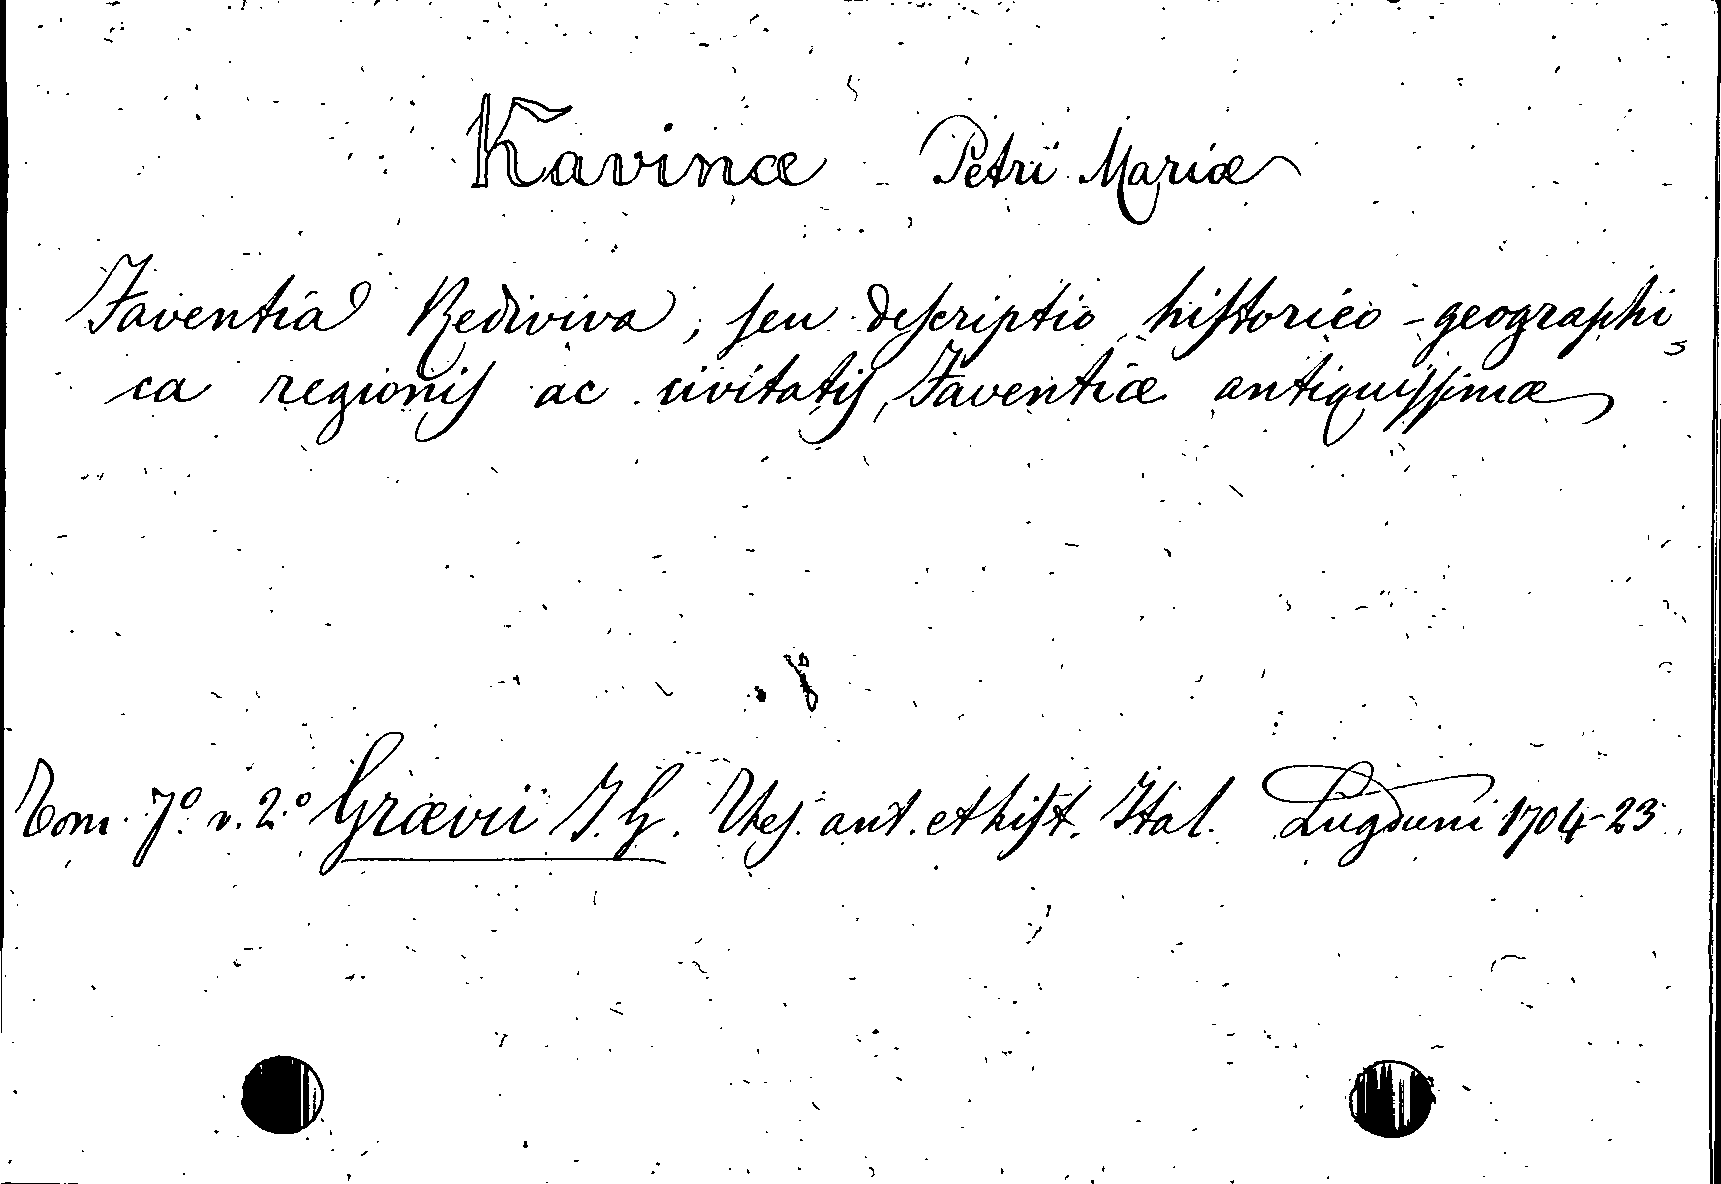 Kavinæ Petri Mariæ
Faventia Rediviva, seu descriptio historico-geographi-
ca regionis ac civitatis Faventiæ antiquissimæ
Tom. 7.º v. 2.º Grævii J. G. Thes. ant. et hist. Ital. Lugduni 1704-23